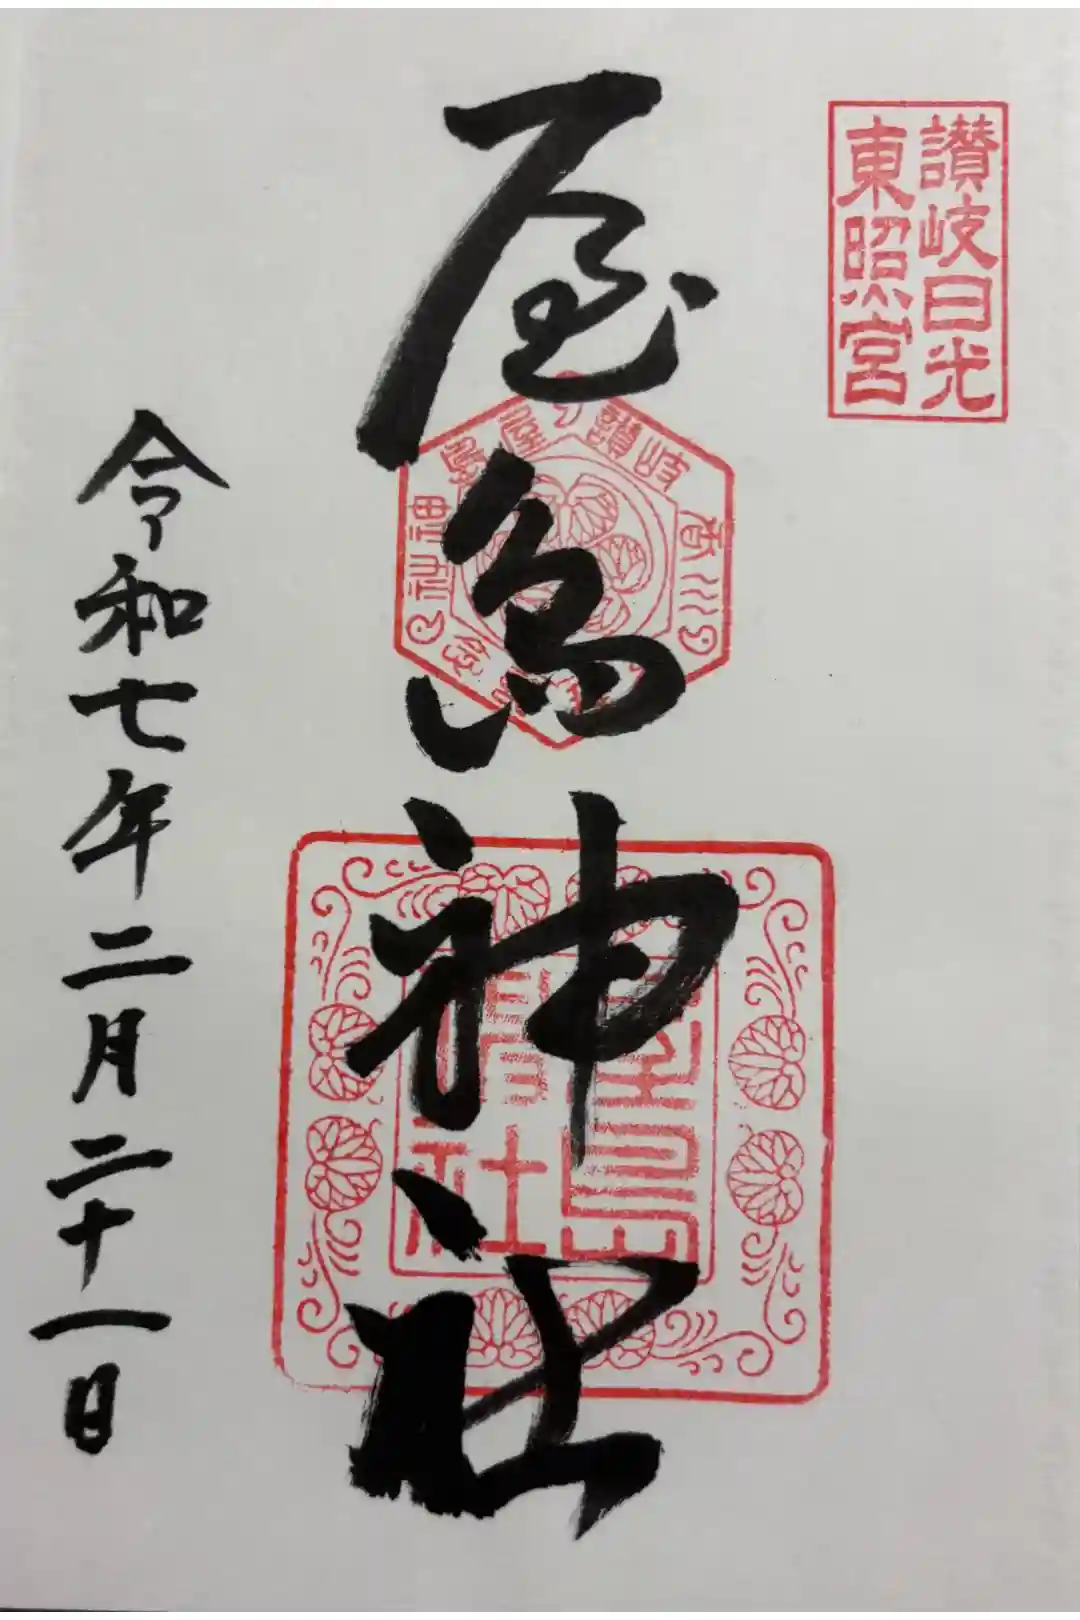 讃岐日光
東照宮
屋島神社
讃岐屋島神社
香川
屋島
社
令和七年二月二十一日